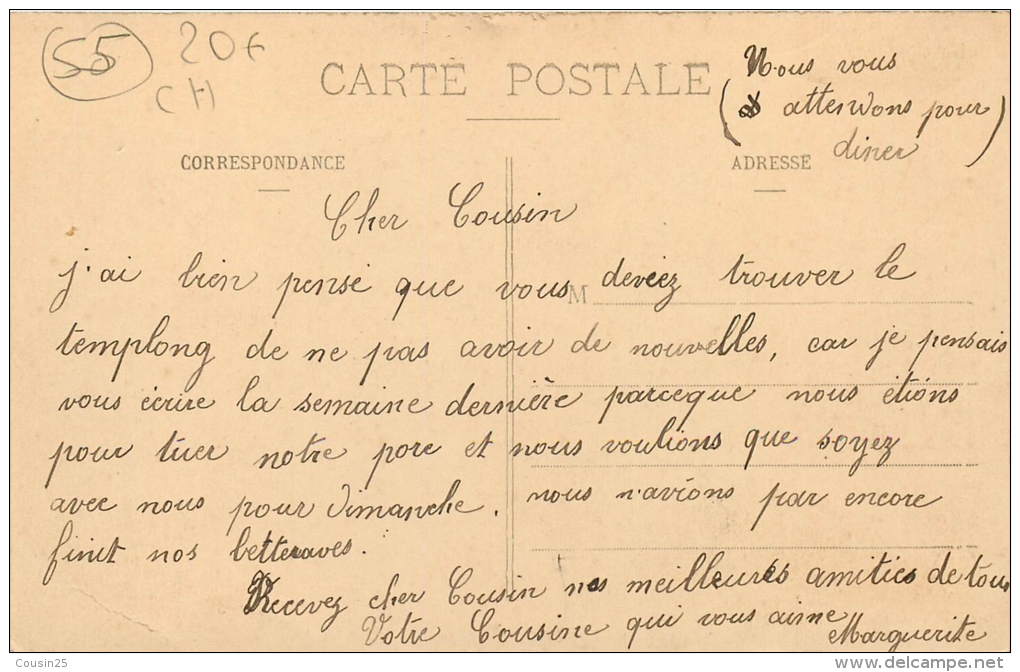 55
20F
CH
CARTE POSTALE
Nous vous
attendons pour
diner
CORRESPONDANCE
ADRESSE
Cher Cousin
j'ai bien pensé que vous deviez trouver le
M
templong de ne pas avoir de nouvelles, car je pensais
vous écrire la semaine dernière parceque nous étions
pour tuer notre porc et nous voulions que soyez
avec nous pour Dimanche. nous n'avions par encore
finit nos betteraves.
Recevez cher Cousin nos meilleures amitiés de tous
Votre Cousine qui vous aime
Marguerite
Cousin25
www.delcampe.net